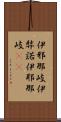 伊邪那岐伊
弉諾伊耶那
岐